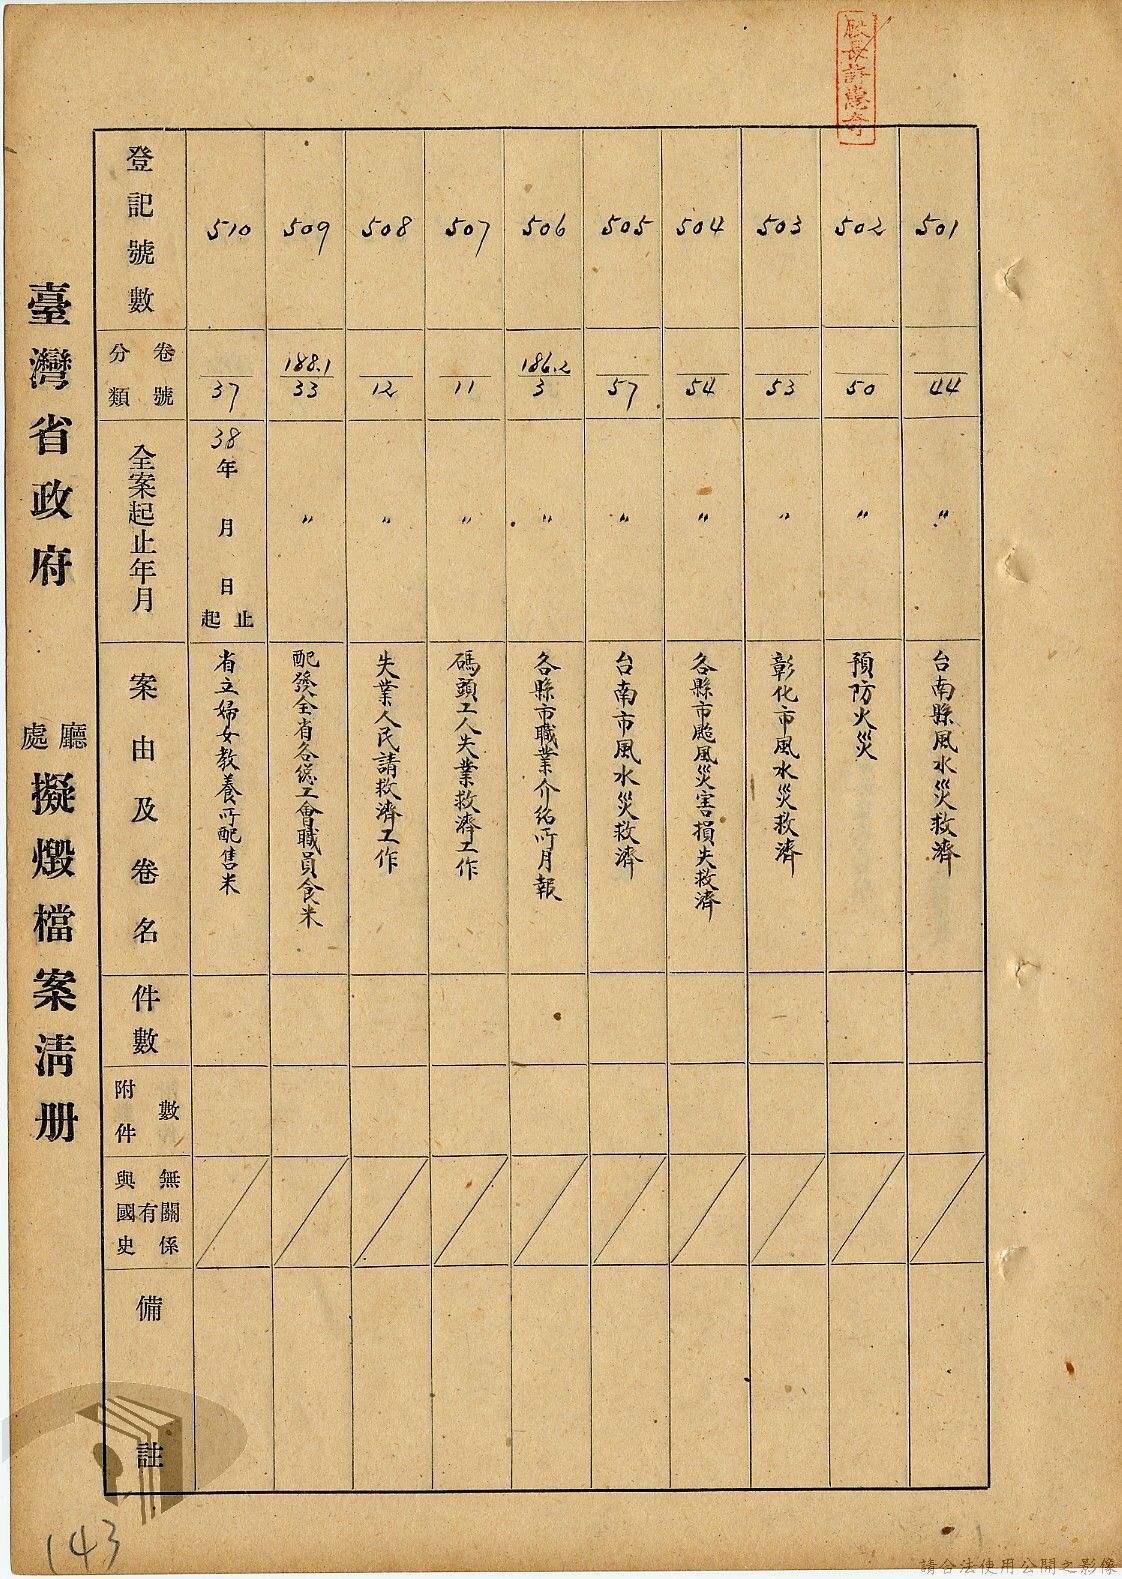 股長許奇
501
44
〃
台南縣風水災救濟
502
50
〃
預防火災
503
53
〃
彰化市風水災救濟
504
54
〃
各縣市颱風災害損失救濟
505
57
〃
台南市風水災救濟
506
186.2
3
〃
各縣市職業介紹所月報
507
11
〃
碼頭工人失業救濟工作
508
12
〃
失業人民請救濟工作
509
188.1
33
〃
配發全省各總工會職員食米
510
37
38年 月 日 起止
省立婦女教養所配售米
登記號數
分類卷號
全案起止年月
案由及卷名
件數
附件數
與國史有無關係
備註
臺灣省政府 廳處 擬燬檔案清册
143
請合法使用公開之影像